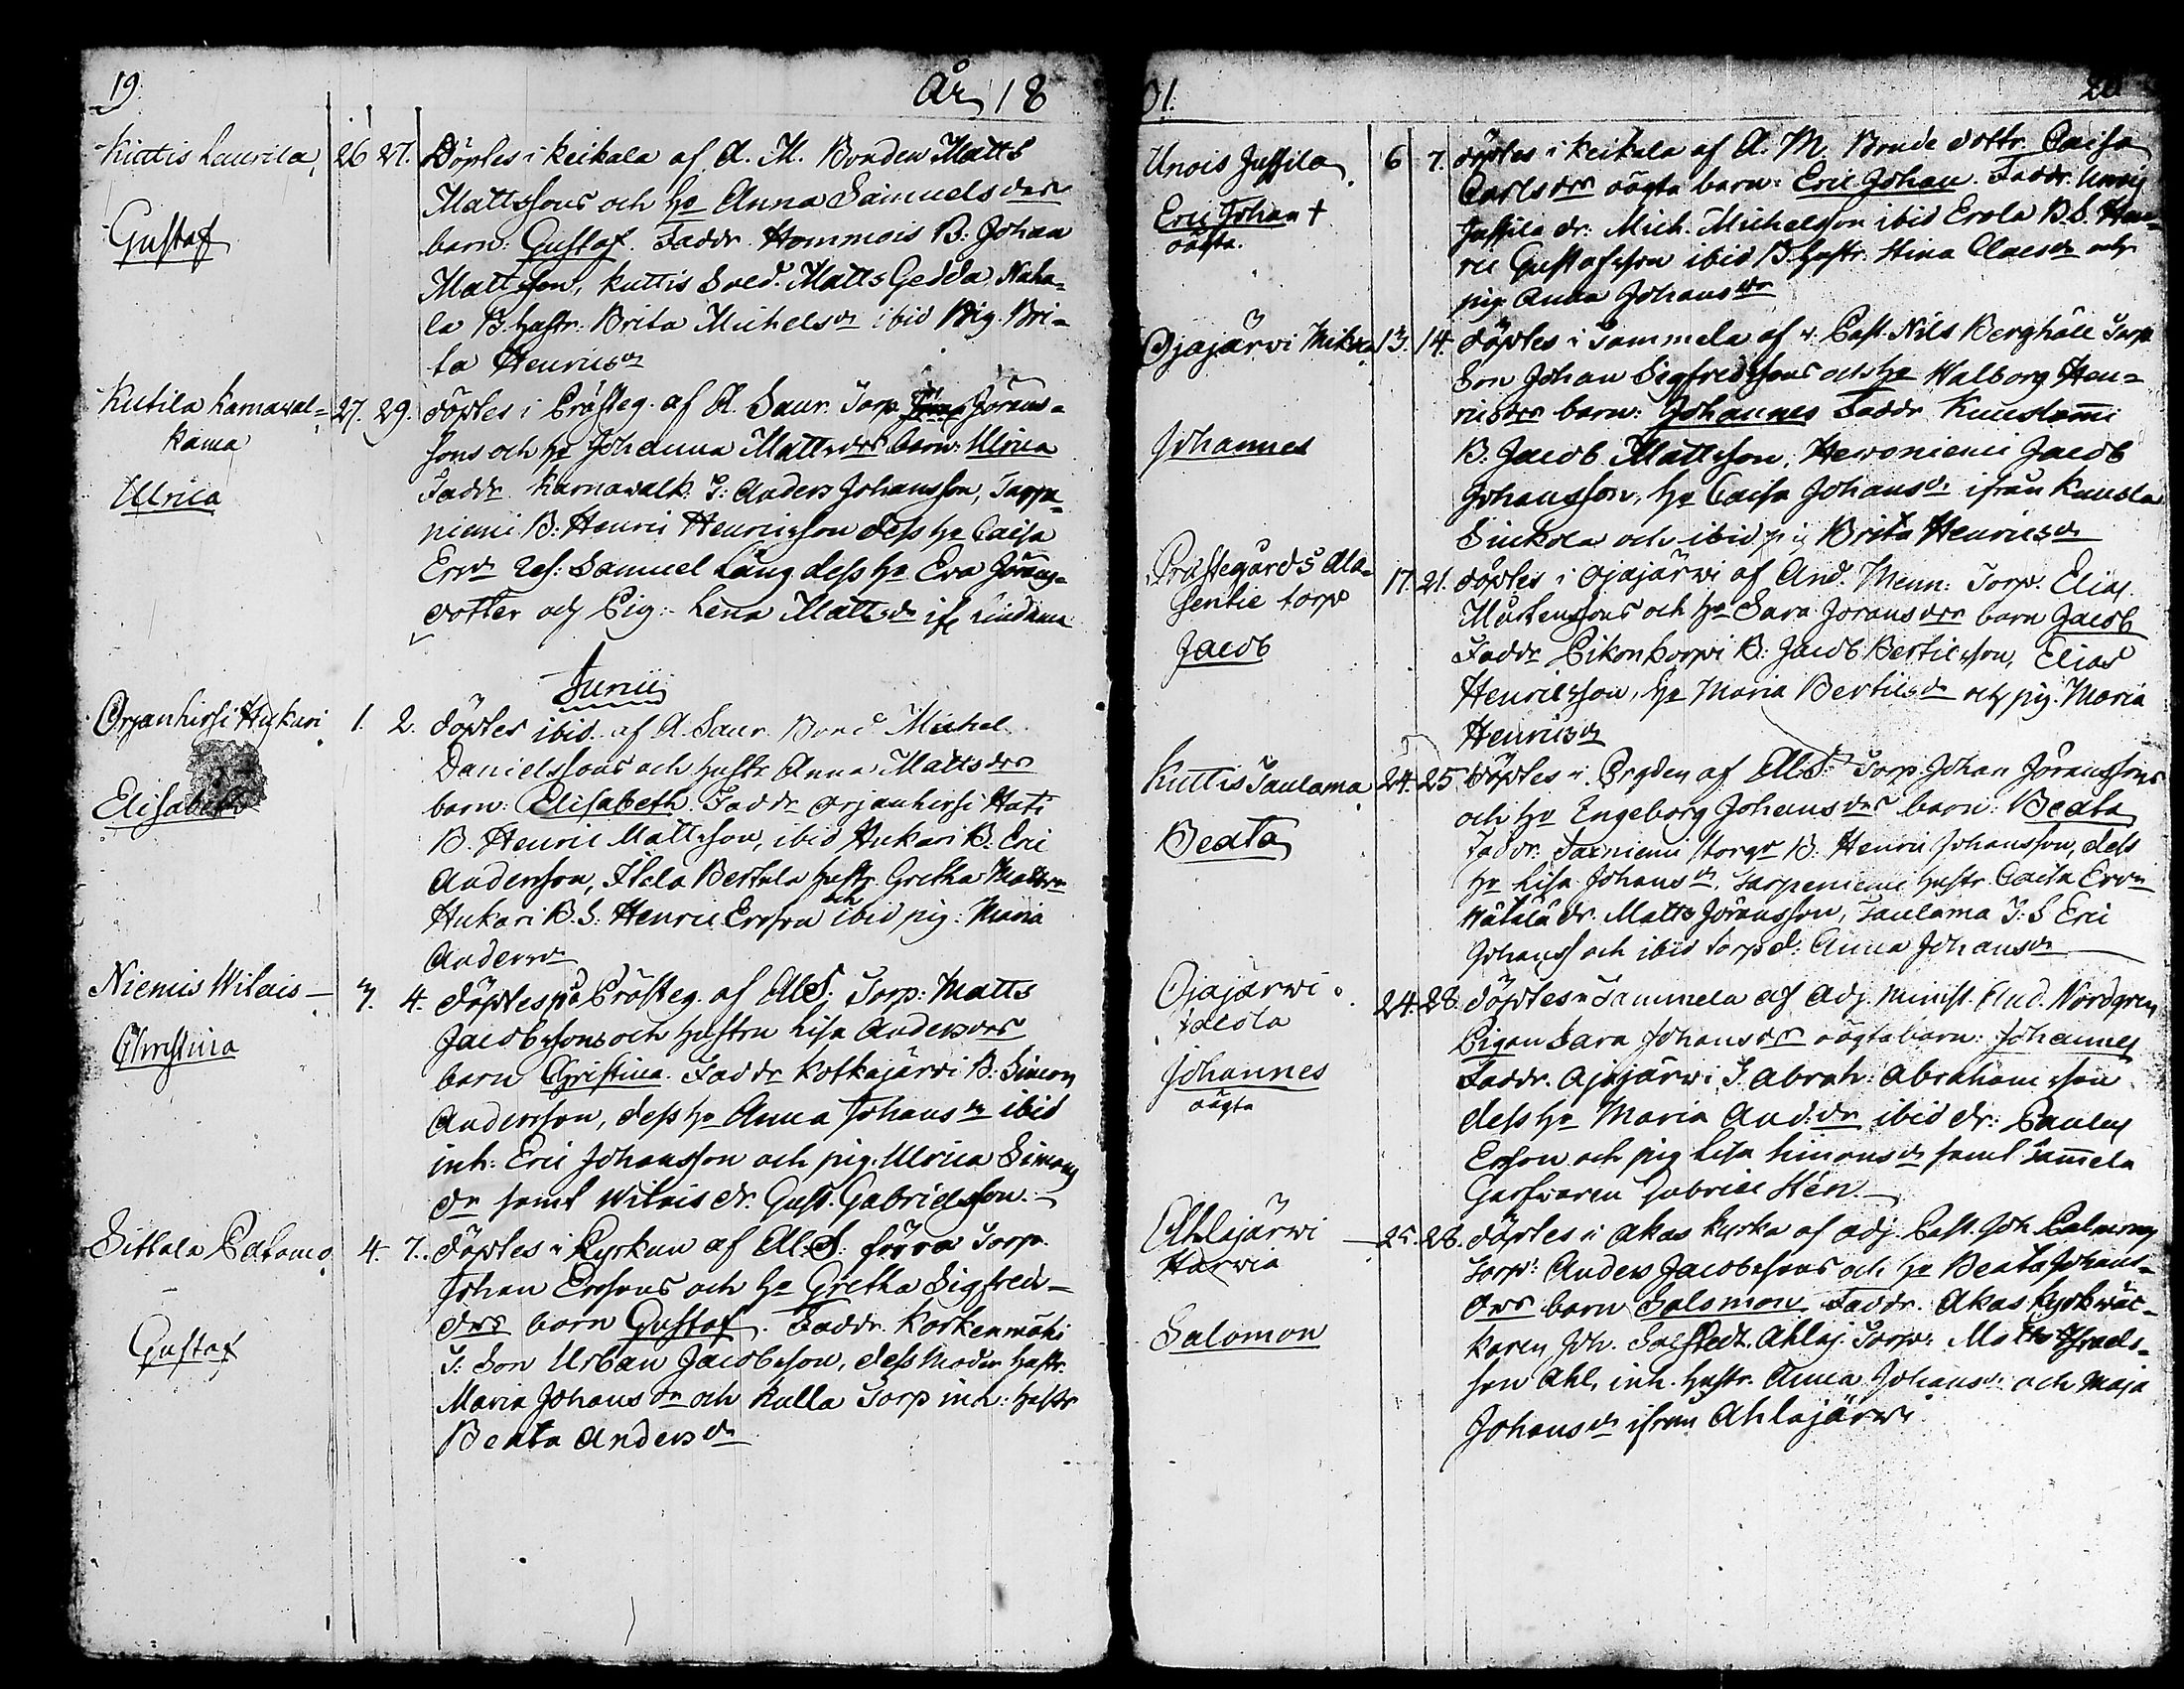 19.
År 18
Kuttis Laurila
26 27. Döptes i Keikala af A. M. Bonden Matts
Mattssons och H:o Anna Samuels der
Gustaf
barn: Gustaf. Faddr. Hommois B: Johan
Mattsson, Kuttis Sold. Matts Gedda, Naha=
la B. hustr. Brita Michels dr ibid Pig. Bri=
ta Henrics dr
Kutila Karnawal=
kama
27. 29. döptes i Prästeg. af A. Saur. Torp. Jörans=
sons och H:o Johanna Matts drs barn: Ulrica
Ulrica
Faddr. Karnawalk. T: Anders Johansson, Tarpa=
niemi B: Henric Henricsson dess H:o Caisa
Ers dr Res: Samuel Lång dess H:o Eva Jörans=
dotter och Pig: Lena Matts dr
Junii
Orjanhirsi Hukari
1. 2. döptes ibid. af A. Saur. Bond. Michel
Danielssons och hustr. Anna Matts drs
Elisabeth
barn: Elisabeth. Faddr. Orjanhirsi Hati
B. Henric Mattsson, ibid Hukari B. Eric
Andersson, Flela Bertula hustr. Gretha Matts dr
Hukari B. S: Henric Ersson och ibid pig: Maria
Anders dr
Niemis Wilais
3. 4. döptes på Prästeg. af Al. S. Torp: Matts
Jacobssons och hustru Lisa Anders drs
Christina
barn Christina. Faddr. Kotkajärvi B: Simon
Andersson, dess H:o Anna Johans dr ibid
inh: Eric Johansson och pig. Ulrica Simons
dr samt Wilais dr. Gust. Gabrielsson.
Sittala Patamo
4. 7. döptes i Kyrkan af Al. S: förra Torp.
Johan Erssons och H:o Gretha Sigfreds
drs barn Gustaf. Faddr. Korkenmäki
Gustaf
T: Son Urban Jacobsson, dess Moder hustr.
Maria Johans dr och Kulla Torp inh: hustr
Beata Anders dr
01.
20
Unois Jussila
6 7. döptes i Keikala af A. M. Bonde dottr. Caisa
Carls drs oägta barn: Eric Johan. Faddr. Unois
Eric Johan †
oägta.
Jussila dr. Mich. Michelsson ibid Erola B. S. Hen=
ric Gustafsson ibid B. hustr. Stina Claes dr och
pig. Anna Johans dr
Ojajärwi Mikola
13. 14. döptes i Tammela af v. Past. Nils Berghäll Torp
Son Johan Sigfredssons och H:o Walborg Hen=
rics drs barn: Johannes Faddr. Kuuslammi
Johannes
B. Jacob Mattsson, Hewoniemi Jacob
Johansson, H:o Caisa Johans dr ifrån Kuusla
Sinkola och ibid pig Brita Henrics dr
Prästegårds Ala=
Jentie torp
17. 21. döptes i Ojajärwi af And. Menn: Torp. Elias
Mårtenssons och H:o Sara Jörans drs barn Jacob
Jacob
Faddr. Pikonkorpi B: Jacob Bertilsson, Elias
Henricsson, H:o Maria Bertils dr och pig. Maria
Henrics dr
Kuttis Taulama
24. 25 Döptes i Bryden af Al. S: Torp. Johan Jöranssons
och H:o Engeborg Johans drs barn: Beata
Beata
Faddr. B. Henric Johansson, dess
H:o Lisa Johans dr, Tarpeniemi hustr. Caisa Ers dr
dr. Matts Jöransson, Taulama T: S Eric
Johanss och ibid torp d. Anna Johans dr
Ojajärwi
24. 28. döptes i Tammela af Adj. Minist. And. Nordgren
Pigan Sara Johans drs oägta barn: Johannes
Johannes
oägta
Faddr. Ojajärwi T. Abrah: Abrahamsson
dess H:o Maria And. dr ibid dr: Paulus
Ersson och pig Lisa Simons dr samt Tammela
Garfwaren Gabriel Stén.
Ahlajärwi
Harwia
25. 28. döptes i Akas Kyrka af Adj. Past. Joh.
Torp: Anders Jacobssons och H:o Beata Johans=
drs barn Salomon Faddr. Akas Kyrkwäc=
Salomon
karen Joh. Ahlaj. Torp: Matts Israels=
son Ahl. inh. hustr. Anna Johans dr och Maja
Johans dr ifrån Ahlajärwi